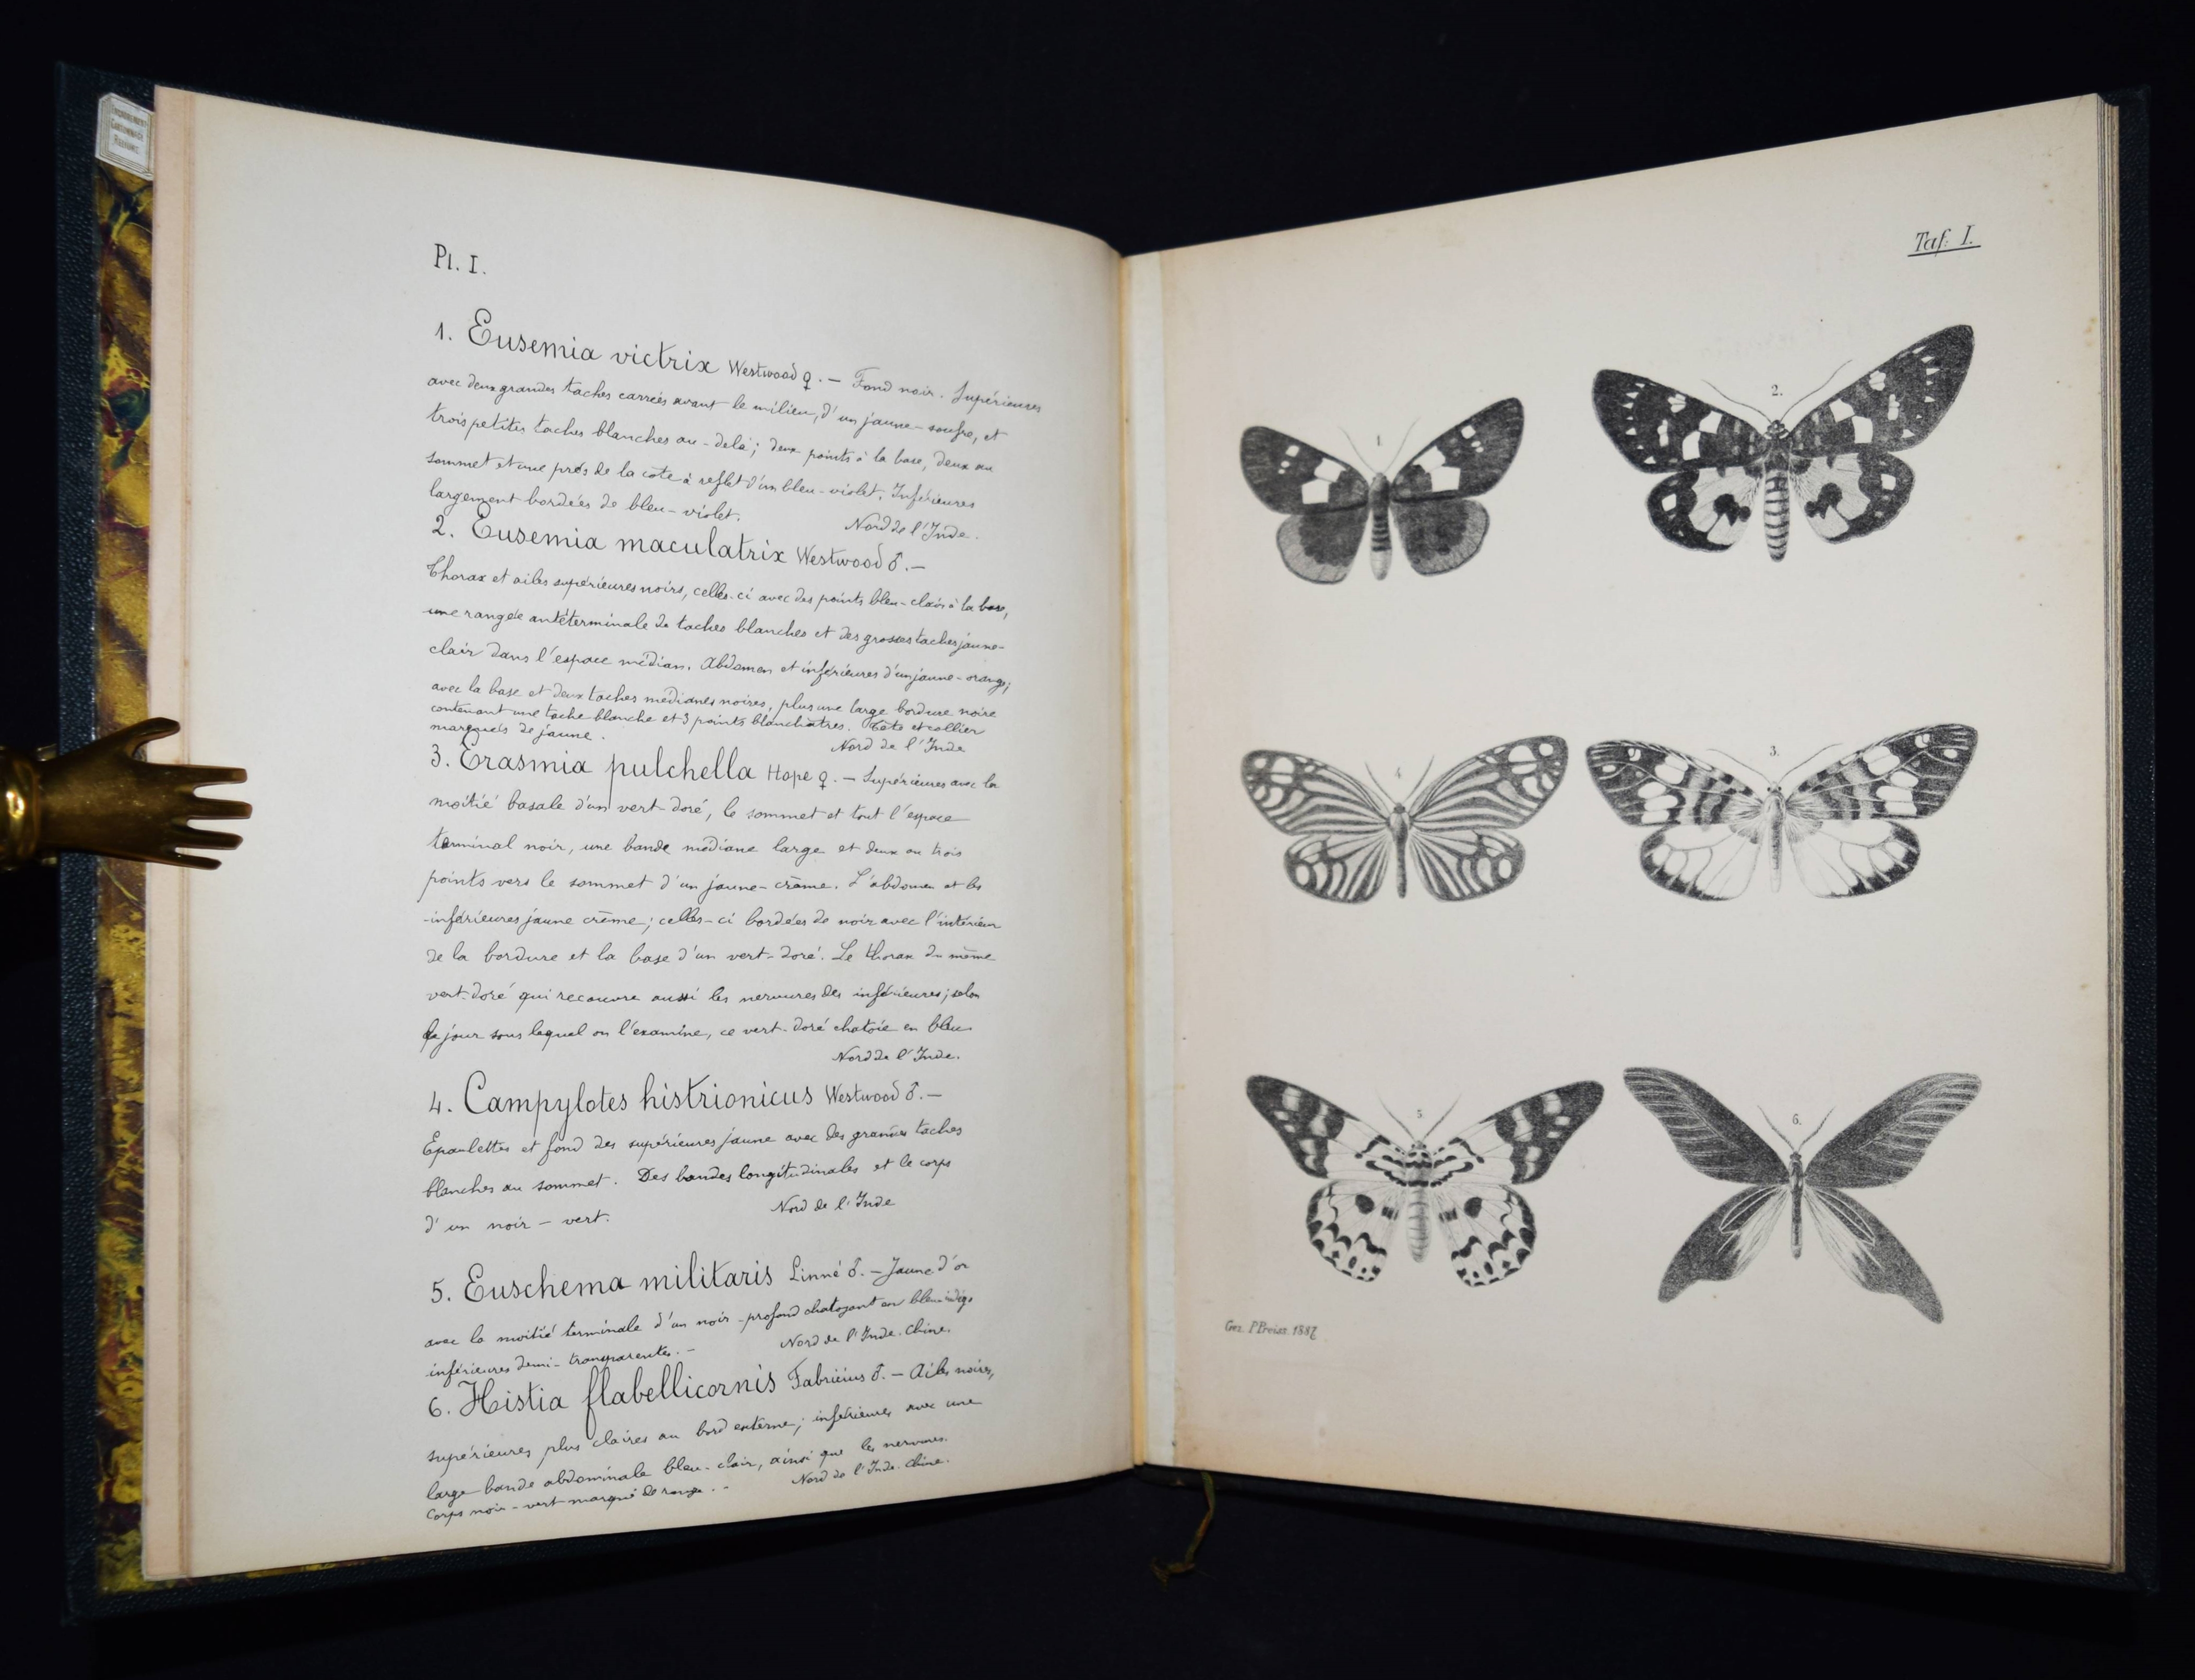 Pl. I.
1. Eusemia victrix Westwood ♀. — Fond noir. Supérieures
avec deux grandes taches carrées avant le milieu, d'un jaune-soufre, et
trois petites taches blanches au-delà; deux points à la base, deux au
sommet et une près de la côte à reflet d'un bleu-violet. Inférieures
largement bordées de bleu-violet.
Nord de l'Inde.
2. Eusemia maculatrix Westwood ♂. —
Thorax et ailes supérieures noirs, celles-ci avec des points bleu-clair à la base,
une rangée antéterminale de taches blanches et des grosses taches jaune-
clair dans l'espace médian. Abdomen et inférieures d'un jaune-orange;
avec la base et deux taches médianes noires, plus une large bordure noire
contenant une tache blanche et 3 points blanchâtres. Tête et collier
marqués de jaune.
Nord de l'Inde
3. Erasmia pulchella Hope ♀. — Supérieures avec la
moitié basale d'un vert-doré, le sommet et tout l'espace
terminal noir, une bande médiane large et deux ou trois
points vers le sommet d'un jaune-crème. L'abdomen et les
inférieures jaune crème; celles-ci bordées de noir avec l'intérieur
de la bordure et la base d'un vert-doré. Le thorax du même
vert-doré qui recouvre aussi les nervures des inférieures; selon
le jour sous lequel on l'examine, ce vert-doré chatoie en bleu.
Nord de l'Inde.
4. Campylotes histrionicus Westwood ♂. —
Epaulettes et fond des supérieures jaune avec des grandes taches
blanches au sommet. Des bandes longitudinales et le corps
d'un noir-vert.
Nord de l'Inde
5. Euschema militaris Linné ♂. — Jaune d'or
avec la moitié terminale d'un noir-profond chatoyant en bleu-indigo
inférieures demi-transparentes. —
Nord de l'Inde. Chine.
6. Histia flabellicornis Fabricius ♂. — Ailes noires,
supérieures plus claires au bord externe; inférieures avec une
large bande abdominale bleu-clair, ainsi que les nervures.
Corps noir-vert marqué de rouge. —
Nord de l'Inde. Chine.
Taf: I.
1
2.
4
3.
5
6.
Gez. P Preiss. 1887